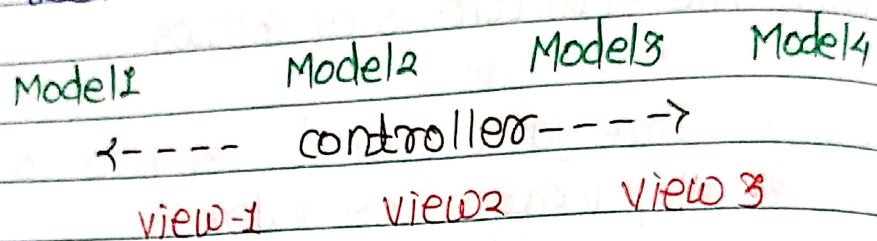 Model1 Model2 Model3 Model4
<---- controller----->
view-1 view2 view 3